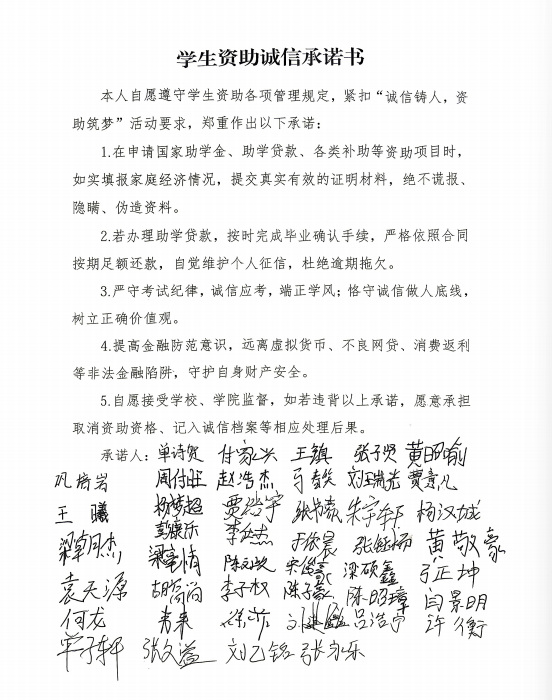 学生资助诚信承诺书
本人自愿遵守学生资助各项管理规定，紧扣“诚信铸人，资
助筑梦”活动要求，郑重作出以下承诺：
1.在申请国家助学金、助学贷款、各类补助等资助项目时，
如实填报家庭经济情况，提交真实有效的证明材料，绝不谎报、
隐瞒、伪造资料。
2.若办理助学贷款，按时完成毕业确认手续，严格依照合同
按期足额还款，自觉维护个人征信，杜绝逾期拖欠。
3.严守考试纪律，诚信应考，端正学风；恪守诚信做人底线，
树立正确价值观。
4.提高金融防范意识，远离虚拟货币、不良网贷、消费返利
等非法金融陷阱，守护自身财产安全。
5.自愿接受学校、学院监督，如若违背以上承诺，愿意承担
取消资助资格、记入诚信档案等相应处理后果。
承诺人：单诗贺 付家兴 王镇 张子贤 黄昭刚
赵浩杰
王曦 杨梦超 贾浩宇 朱宇轩 杨汉城
彭康乐 黄敬豪
陈元 梁硕鑫 弓正坤
袁天源 胡高尚 李子权 陈子豪 陈昭璋 闫景明
何龙 吕浩宇 许衡
单子轩 张文溢 刘乙铭 张永乐